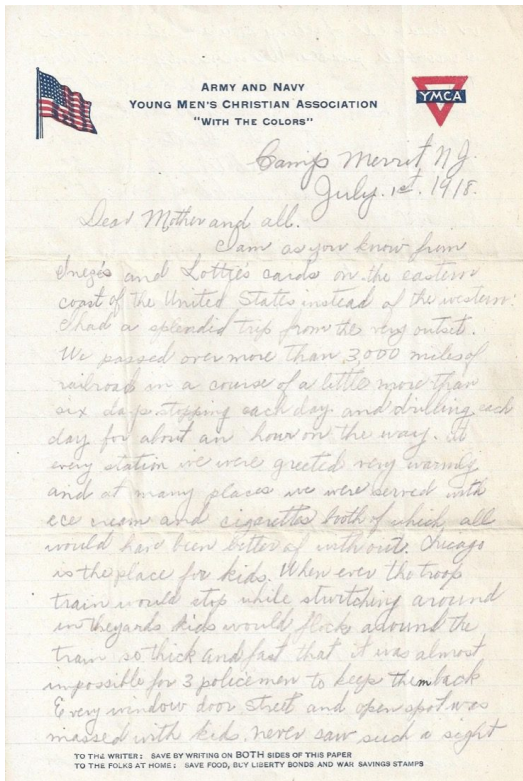 ARMY AND NAVY
YOUNG MEN'S CHRISTIAN ASSOCIATION
"WITH THE COLORS"
YMCA
Camp Merrit N.J.
July. 1st. 1918.
Dear Mother and all.
I am as you know from
Inez's and Lottie's cards on the eastern
coast of the United States instead of the western.
I had a splendid trip from the very outset.
We passed over more than 3,000 miles of
railroad in a course of a little more than
six days stopping each day and drilling each
day for about an hour on the way. At
every station we were greeted very warmly
and at many places we were served with
ice cream and cigarettes both of which all
would have been better of without. Chicago
is the place for kids. When ever the troop
train would stop while switching around
in the yards kids would flock around the
train so thick and fast that it was almost
impossible for 3 policemen to keep them back
Every window door street and open spot was
massed with kids. never saw such a sight
TO THE WRITER: SAVE BY WRITING ON BOTH SIDES OF THIS PAPER
TO THE FOLKS AT HOME: SAVE FOOD, BUY LIBERTY BONDS AND WAR SAVINGS STAMPS